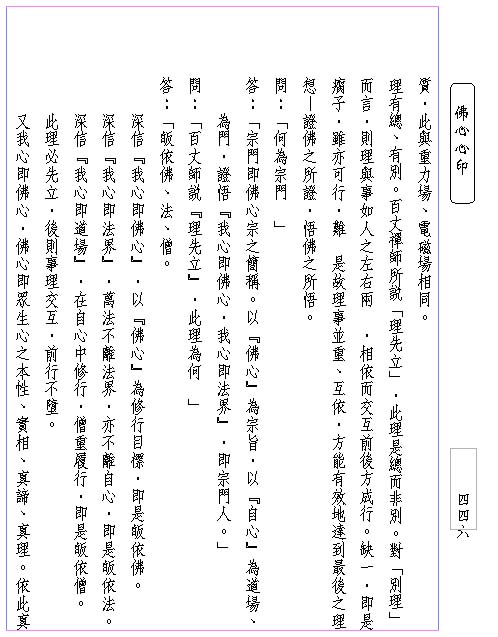 佛心心印
質，此與重力場、電磁場相同。
理有總、有別。百丈禪師所說「理先立」，此理是總而非別。對「別理」
而言，則理與事如人之左右兩　，相依而交互前後方成行。缺一，即是
瘸子，雖亦可行，難　是故理事並重、互依，方能有效地達到最後之理
想—證佛之所證，悟佛之所悟。
問：「何為宗門　」
答：「宗門即佛心宗之簡稱。以『佛心』為宗旨，以『自心』為道場、
為門，證悟『我心即佛心，我心即法界』，即宗門人。」
問：「百丈師說『理先立』，此理為何　」
答：「皈依佛、法、僧。
深信『我心即佛心』，以『佛心』為修行目標，即是皈依佛。
深信『我心即法界』，萬法不離法界，亦不離自心，即是皈依法。
深信『我心即道場』，在自心中修行，僧重履行，即是皈依僧。
此理必先立，後則事理交互，前行不墮。
又我心即佛心，佛心即眾生心之本性、實相、真諦、真理。依此真
四四六